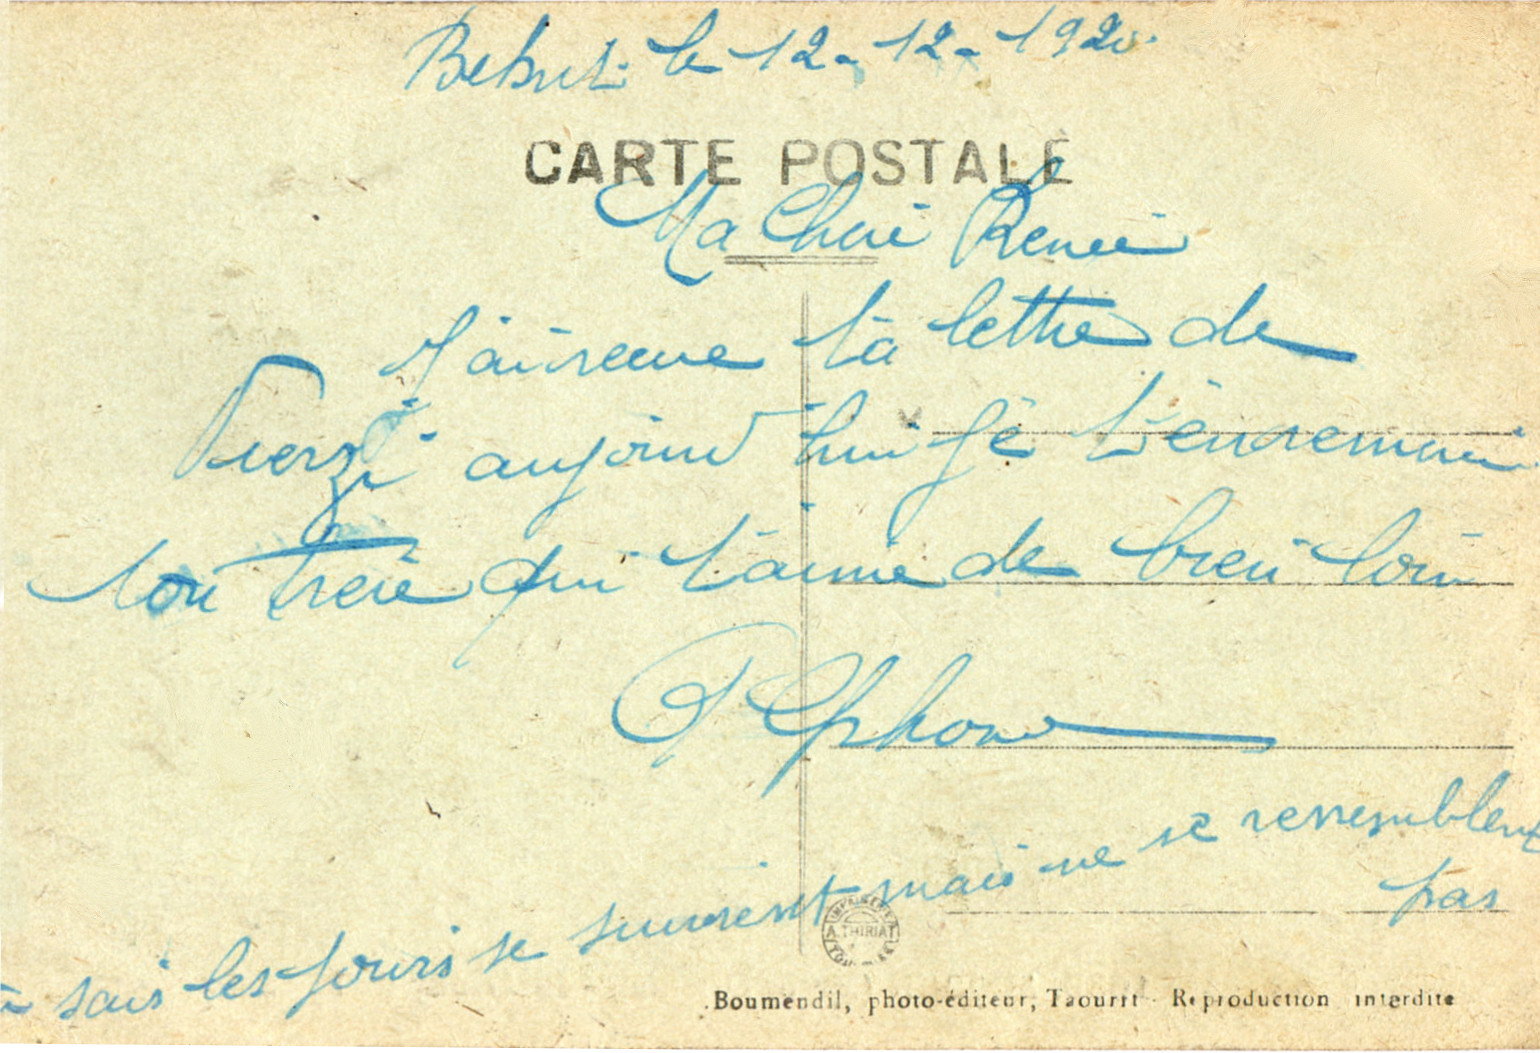 le 12-12-1920
CARTE POSTALE
Ma Cheri Renée
J'ai recue ta lettre de
Vierzi aujourd'hui je t'en remerci
ton frere qui t'aime de bien loin
Alphonse
sais les jours se suivent mais ne se ressemblent
pas
A. THIRIAT
Boumendil, photo-éditeur, Taourirt - Reproduction interdite